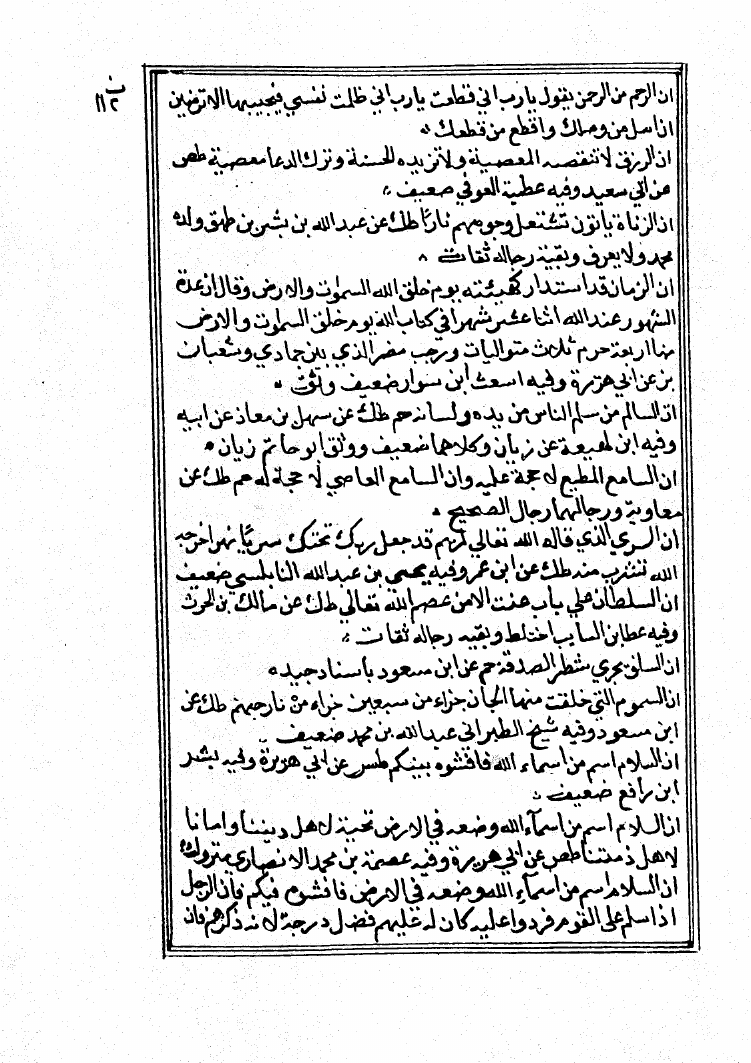 ن
١١٢
ان الرحم من الرحمن تقول يا رب اني قطعت يا رب اني ظلمت نفسي فيجيبها الا ترضين
ان اصل من وصلك واقطع من قطعك
ان الرزق لا تنقصه المعصية ولا تزيده الحسنة وترك الدعا معصية طص
عن ابي سعيد وفيه عطية العوفي ضعيف
ان الزناة ياتون تشتعل وجوههم نارا طك عن عبد الله بن بشر من طريق ولده
محمد ولا يعرف وبقية رجاله ثقات
ان الزمان قد استدار كهيئته يوم خلق الله السموات والارض وقال ان عدة
الشهور عند الله اثنا عشر شهرا في كتاب الله يوم خلق السموات والارض
منها اربعة حرم ثلاث متواليات ورجب مضر الذي بين جمادي وشعبان
بز عن ابي هريرة وفيه اشعث ابن سوار ضعيف وثق
ان السالم من سلم الناس من يده ولسانه حم طك عن سهل بن معاذ عن ابيه
وفيه ابن لهيعة عن زبان وكلاهما ضعيف ووثق ابو حاتم زبان
ان السامع المطيع لا حجة عليه وان السامع العاصي لا حجة له حم طك عن
معاوية ورجالهما رجال الصحيح
ان السري الذي قاله الله تعالي لمريم قد جعل ربك تحتك سريا نهر اخرجه
الله لتشرب منه طك عن ابن عمر وفيه يحيي بن عبد الله البابلتي ضعيف
ان السلطان علي باب عنت الا من عصم الله تعالي طك عن مالك بن الحرث
وفيه عطا بن السايب اختلط وبقيه رجاله ثقات
ان السلف يجري شطر الصدقة حم عن ابن مسعود باسناد جيد
ان السموم التي خلقت منها الجان جزاء من سبعين جزاء من نار جهنم طك عن
ابن مسعود وفيه شيخ الطبراني عبد الله بن محمد ضعيف
ان السلام اسم من اسماء الله فافشوه بينكم طس عن ابي هريرة وفيه بشر
ابن رافع ضعيف
ان السلام اسم من اسمآء الله وضعه في الارض تحية لاهل ديننا وامانا
لاهل ذمتنا طص عن ابي هريرة وفيه عصمة بن محمد الانصاري متروك
ان السلام اسم من اسمآء الله وضعه في الارض فافشوه فيكم فان الرجل
اذا سلم علي القوم فردوا عليه كان له عليهم فضل درجة لانه ذكرهم فان